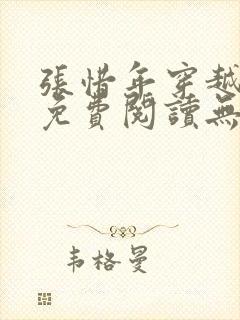 張惜年穿越
免費閱讀無
韦格曼